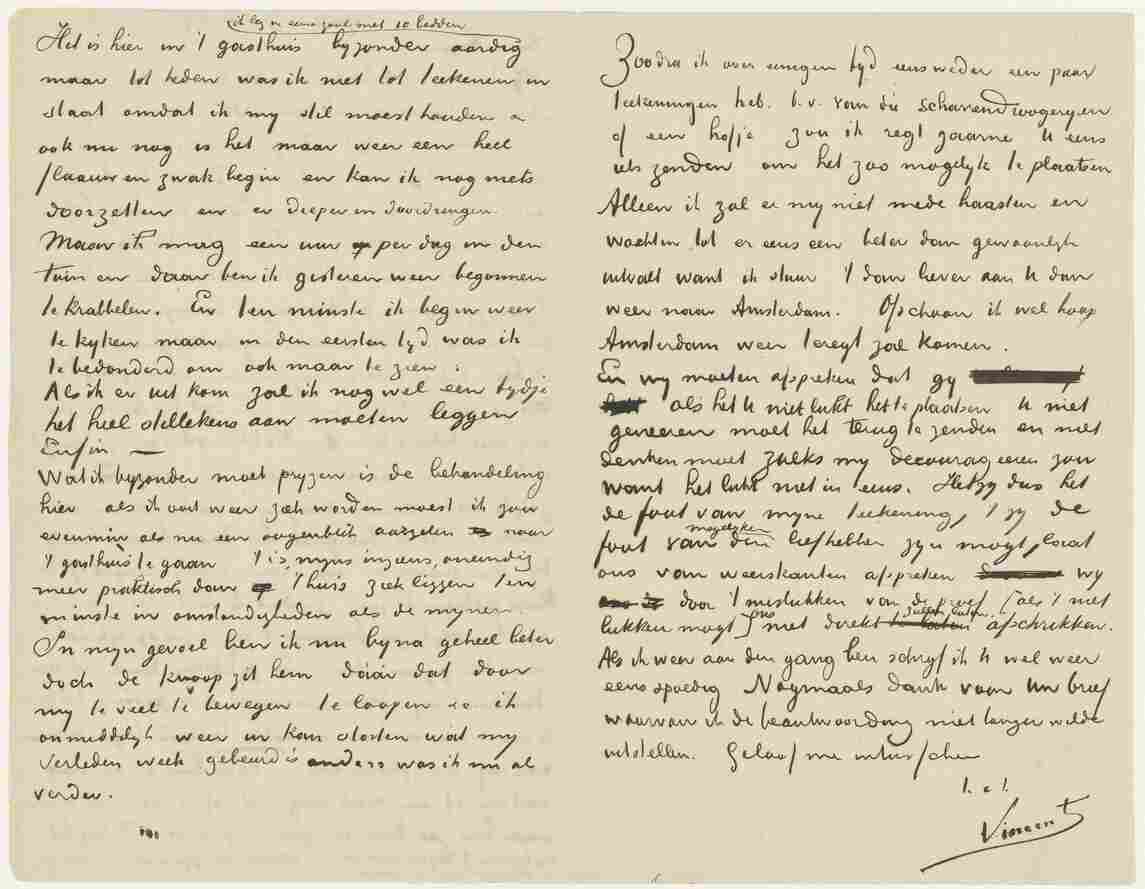 ik leg in eene zaal met 10 bedden
Het is hier in 't gasthuis byzonder aardig
maar tot heden was ik niet tot teekenen in
staat omdat ik my stil moest houden &
ook nu nog is het maar weer een heel
flaauw en zwak begin en kan ik nog niets
doorzetten en er dieper in doordringen.
Maar ik mag een uur per dag in den
tuin en daar ben ik gisteren weer begonnen
te krabbelen. En ten minste ik begin weer
te kyken maar in den eersten tyd was ik
te bedonderd om ook maar te zien.
Als ik er uit kom zal ik nog wel een tydje
het heel stillekens aan moeten leggen
Enfin —
Wat ik byzonder moet pryzen is de behandeling
hier als ik ooit weer ziek worden moest ik zou
evenmin als nu een oogenblik aarzelen naar
't gasthuis te gaan 't is, myns inziens, oneindig
meer praktisch dan 't huis ziek liggen ten
minste in omstandigheden als de mynen.
In myn gevoel ben ik nu byna geheel beter
doch de knoop zit hem dáár dat door
my te veel te bewegen te loopen &c ik
onmiddelyk weer in kan storten wat my
verleden week gebeurd is anders was ik nu al
verder.
Zoodra ik over eenigen tyd eens weder een paar
teekeningen heb. b.v. van die scharrendroogeryen
of een hofje zou ik regt gaarne U eens
iets zenden om het zoo mogelyk te plaatsen
Alleen ik zal er my niet mede haasten en
wachten tot er eens een beter dan gewoonlyk
uitvalt want ik stuur 't dan liever aan U dan
weer naar Amsterdam. Ofschoon ik wel hoop
Amsterdam weer teregt zal komen.
En wy moeten afspreken dat gy
als het U niet lukt het te plaatsen U niet
geneeren moet het terug te zenden en niet
denken moet zulks my decourageeren zou
want het lukt niet in eens. Hetzy dus het
de fout van myne teekening, 't zy de
mogelyken
fout van den liefhebber zyn mogt, laat
ons van weerskanten afspreken wy
door 't mislukken van de proef (als 't niet
zullen laten
lukken mogt) ons niet direkt afschrikken.
Als ik weer aan den gang ben schryf ik U wel weer
eens spoedig Nogmaals dank voor Uw brief
waarvan ik de beantwoording niet langer wilde
uitstellen. Geloof me intusschen
t. à t.
Vincent